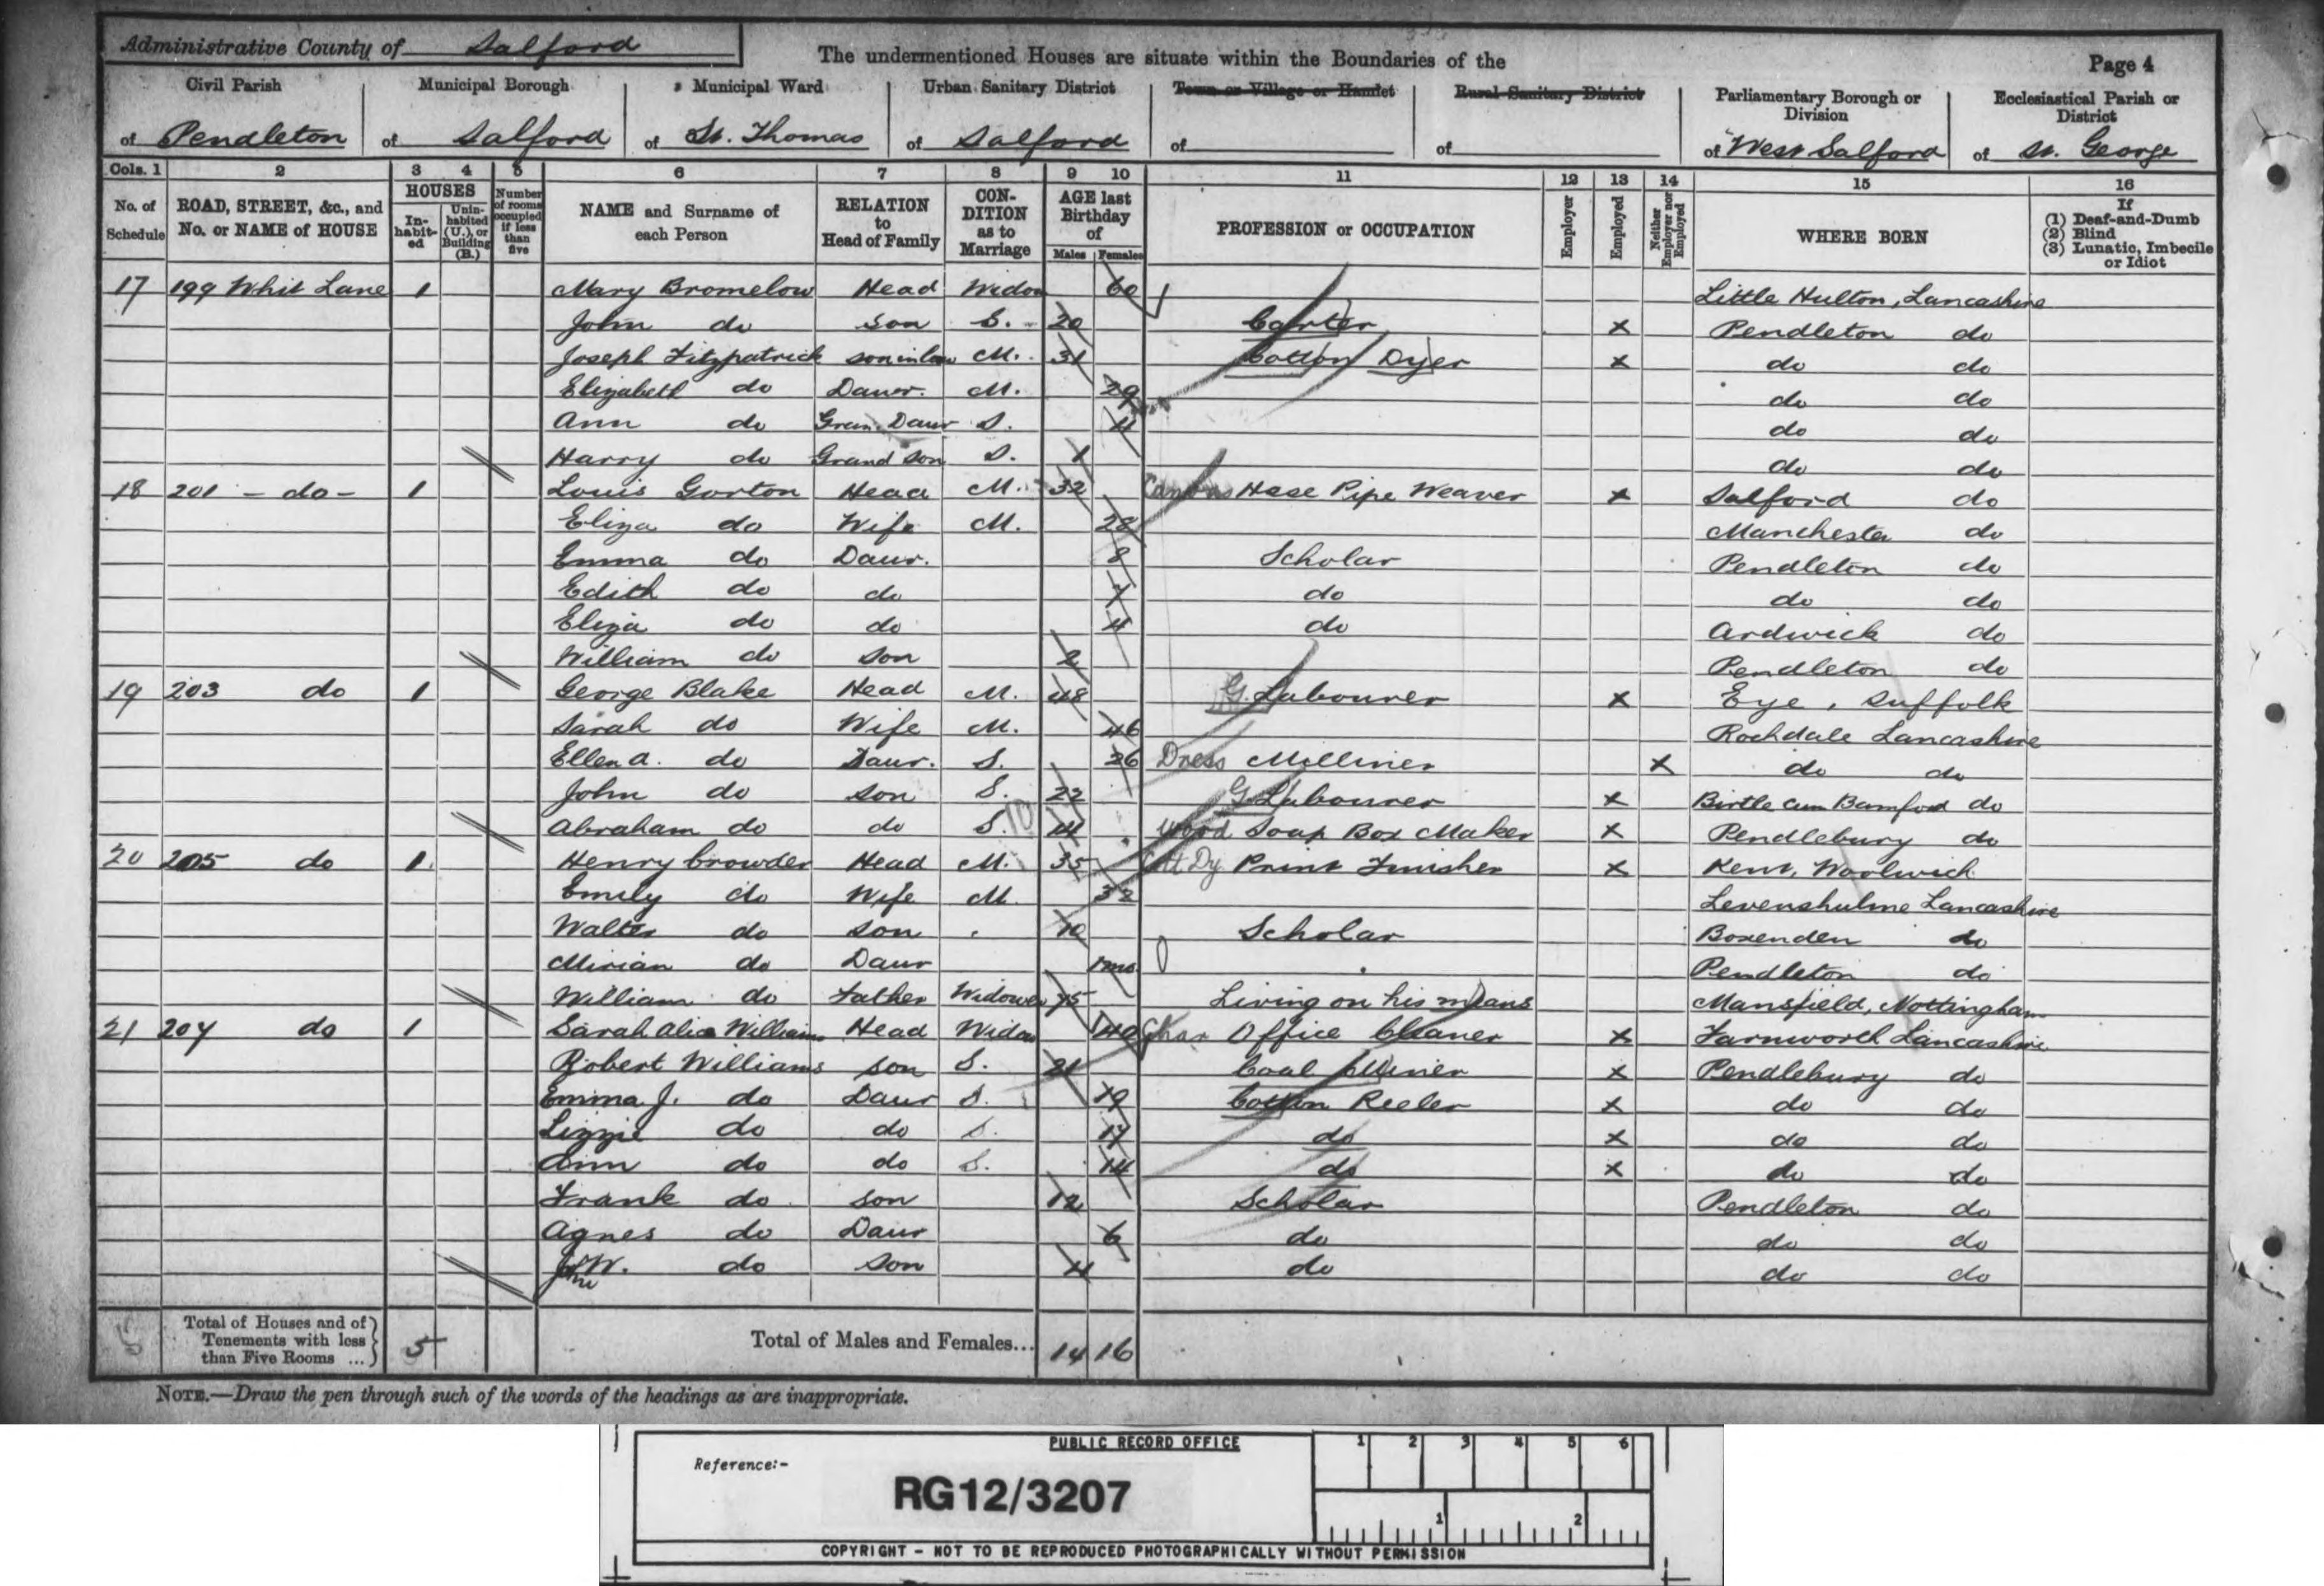 Administrative County of Salford
The undermentioned Houses are situate within the Boundaries of the
Page 4
Civil Parish Municipal Borough Municipal Ward Urban Sanitary District Town or Village or Hamlet Rural Sanitary District Parliamentary Borough or Division Ecclesiastical Parish or District
of Pendleton of Salford of St. Thomas of Salford of of of West Salford of St. George
Cols. 1 2 3 4 5 6 7 8 9 10 11 12 13 14 15 16
No. of Schedule ROAD, STREET, &c., and No. or NAME of HOUSE HOUSES In-habit-ed Unin-habited (U.), or Building (B.) Number of rooms occupied if less than five NAME and Surname of each Person RELATION to Head of Family CON-DITION as to Marriage AGE last Birthday of Males Females PROFESSION or OCCUPATION Employer Employed Neither Employer nor Employed WHERE BORN If (1) Deaf-and-Dumb (2) Blind (3) Lunatic, Imbecile or Idiot
17 199 Whit Lane 1 Mary Bromelow Head Widow 60 Little Hulton, Lancashire
John do Son S. 20 Carter X Pendleton do
Joseph Fitzpatrick son in law M. 31 Cotton Dyer X do do
Elizabeth do Daur. M. 29 do do
Ann do Gran. Daur S. 4 do do
Harry do Grand Son S. 1 do do
18 201 - do - 1 Louis Gorton Head M. 32 Canvas Hose Pipe Weaver X Salford do
Eliza do Wife M. 28 Manchester do
Emma do Daur. 8 Scholar Pendleton do
Edith do do 7 do do do
Eliza do do 4 do Ardwick do
William do Son 2 Pendleton do
19 203 do 1 George Blake Head M. 48 G. Labourer X Eye, Suffolk
Sarah do Wife M. 46 Rochdale Lancashire
Ellen A. do Daur. S. 26 Dress Milliner X do do
John do Son S. 22 G. Labourer X Birtle cum Bamford do
Abraham do do S. 14 Wood Soap Box Maker X Pendlebury do
20 205 do 1 Henry Crowder Head M. 35 Cott Dy Print Finisher X Kent, Woolwich
Emily do Wife M. 32 Levenshulme Lancashire
Walter do Son 10 Scholar Boxenden do
Mirian do Daur 1 mo. Pendleton do
William do Father Widower 75 Living on his means Mansfield, Nottingham
21 207 do 1 Sarah Alice Williams Head Widow 40 Char Office Cleaner X Farnworth Lancashire
Robert Williams Son S. 21 Coal Miner X Pendlebury do
Emma J. do Daur S. 19 Cotton Reeler X do do
Lizzie do do S. 17 do X do do
Ann do do S. 14 do X do do
Frank do Son 12 Scholar Pendleton do
Agnes do Daur 6 do do do
John W. do Son 4 do do do
Total of Houses and of Tenements with less than Five Rooms ... 5 Total of Males and Females... 14 16
NOTE.—Draw the pen through such of the words of the headings as are inappropriate.
PUBLIC RECORD OFFICE 1 2 3 4 5 6
Reference:-
RG12/3207
1 2
COPYRIGHT - NOT TO BE REPRODUCED PHOTOGRAPHICALLY WITHOUT PERMISSION